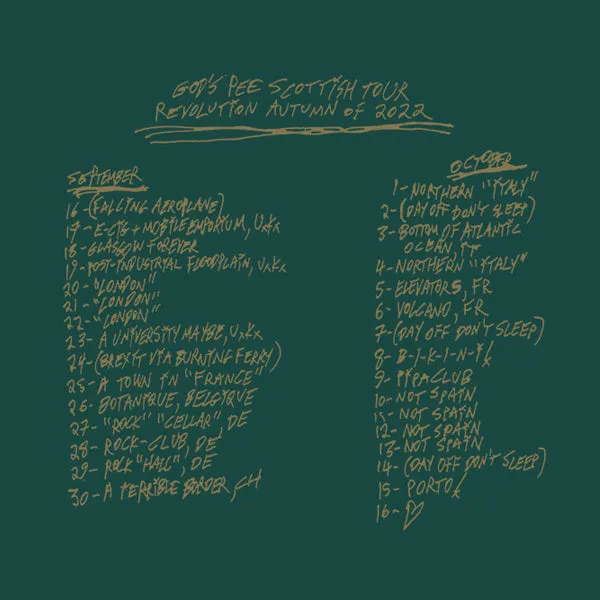 GOD'S PEE SCOTTISH TOUR
REVOLUTION AUTUMN OF 2022
SEPTEMBER
16 - (FALLING AEROPLANE)
17 - E-CIG + MOBILE EMPORIUM, UxKx
18 - GLASGOW FOREVER
19 - POST-INDUSTRIAL FLOODPLAIN, UxKx
20 - "LONDON"
21 - "LONDON"
22 - "LONDON"
23 - A UNIVERSITY MAYBE, UxKx
24 - (BREXIT VIA BURNING FERRY)
25 - A TOWN IN "FRANCE"
26 - BOTANIQUE, BELGIQUE
27 - "ROCK" "CELLAR", DE
28 - ROCK-CLUB, DE
29 - ROCK "HALL", DE
30 - A TERRIBLE BORDER, CH
OCTOBER
1 - NORTHERN "ITALY"
2 - (DAY OFF DON'T SLEEP)
3 - BOTTOM OF ATLANTIC
OCEAN, IT
4 - NORTHERN "ITALY"
5 - ELEVATORS, FR
6 - VOLCANO, FR
7 - (DAY OFF DON'T SLEEP)
8 - B-I-K-I-N-I!
9 - PIPACLUB
10 - NOT SPAIN
11 - NOT SPAIN
12 - NOT SPAIN
13 - NOT SPAIN
14 - (DAY OFF DON'T SLEEP)
15 - PORTO!
16 - ♡